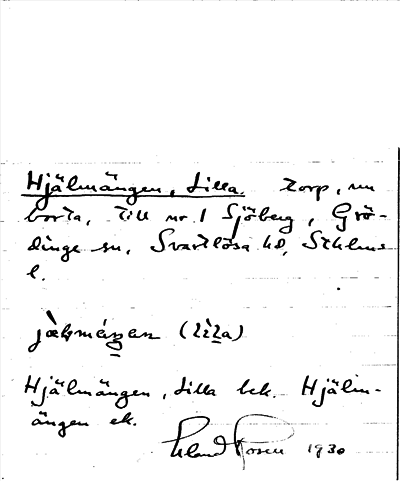 Hjälmängen, Lilla. torp, nu
borta, till nr. 1 Sjöberg, Grö-
dinge sn, Svartlösa hd, Sthlms
l.
(lìla)
Hjälmängen, Lilla bek. Hjälm-
ängen ek.
Erland Rosell 1930